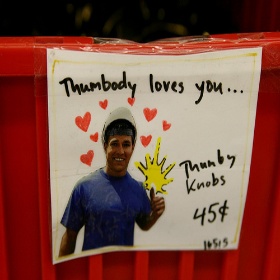 Thumbody loves you...
Thumby
Knobs
45¢
14515